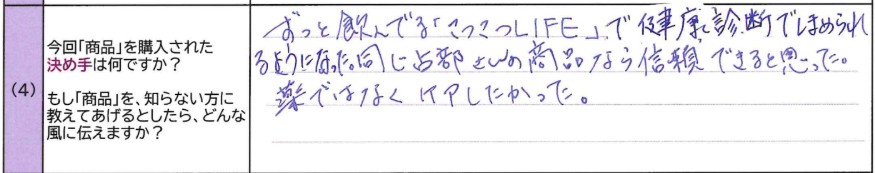 (4)
今回「商品」を購入された
決め手は何ですか?
もし「商品」を、知らない方に
教えてあげるとしたら、どんな
風に伝えますか?
ずっと飲んでる「こつこつLIFE」で健康診断でほめられ
るようになった。同じ占部さんの商品なら信頼できると思った。
薬ではなくケアしたかった。